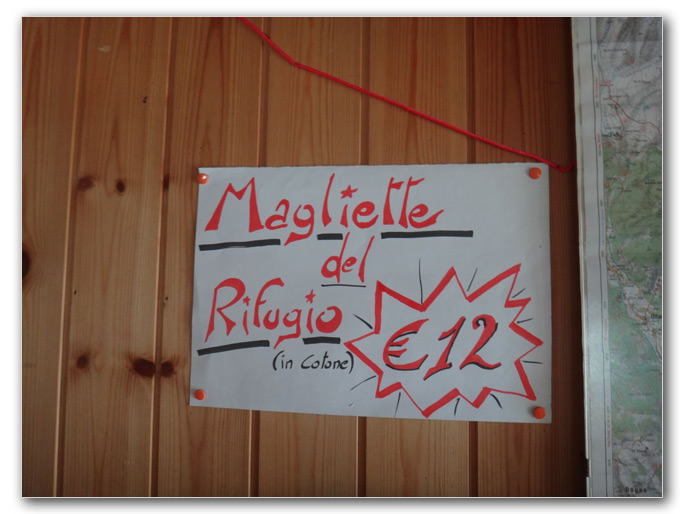 Magliette
del
Rifugio
(in cotone)
€12